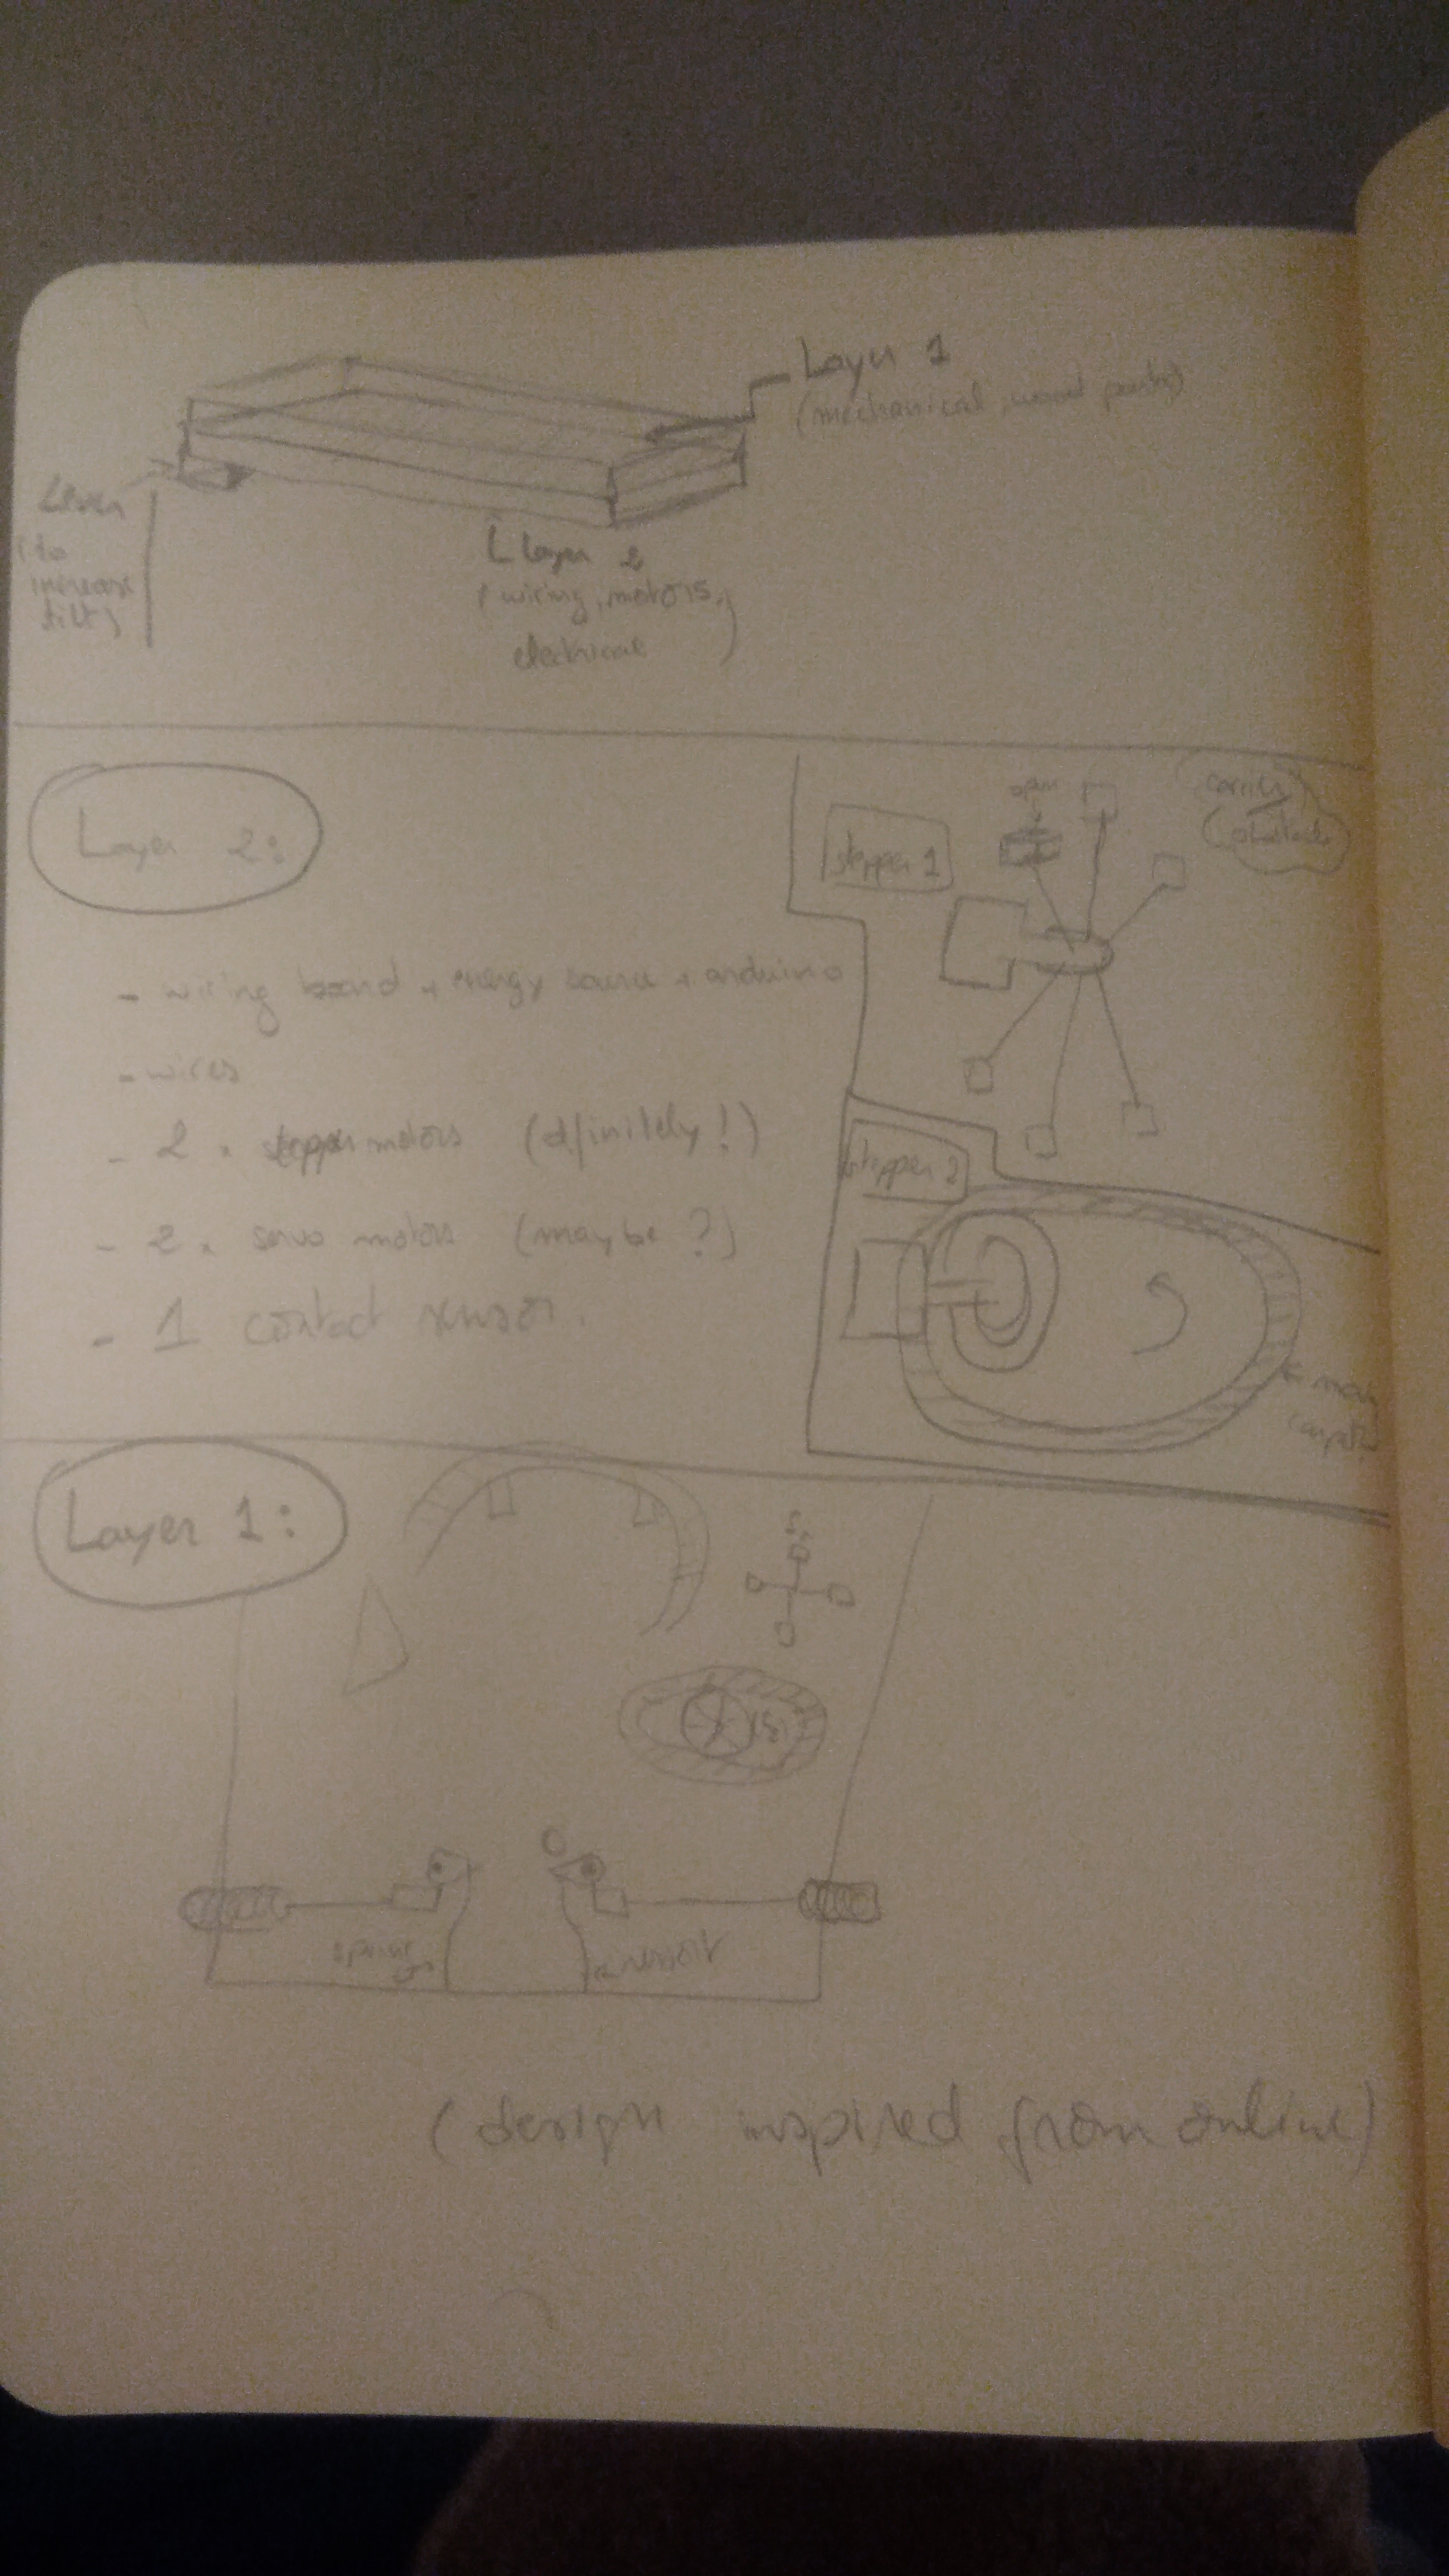 Layer 1
(mechanical, wood parts)
(to
increase
tilt)
Layer 2
(wiring, motors,
electrical)
Layer 2:
- wiring board + energy source + arduino
- wires
- 2 x stepper motors (definitely!)
- 2 x servo motors (maybe?)
- 1 contact sensor.
stepper 1
stepper 2
Layer 1:
(design inspired from online)